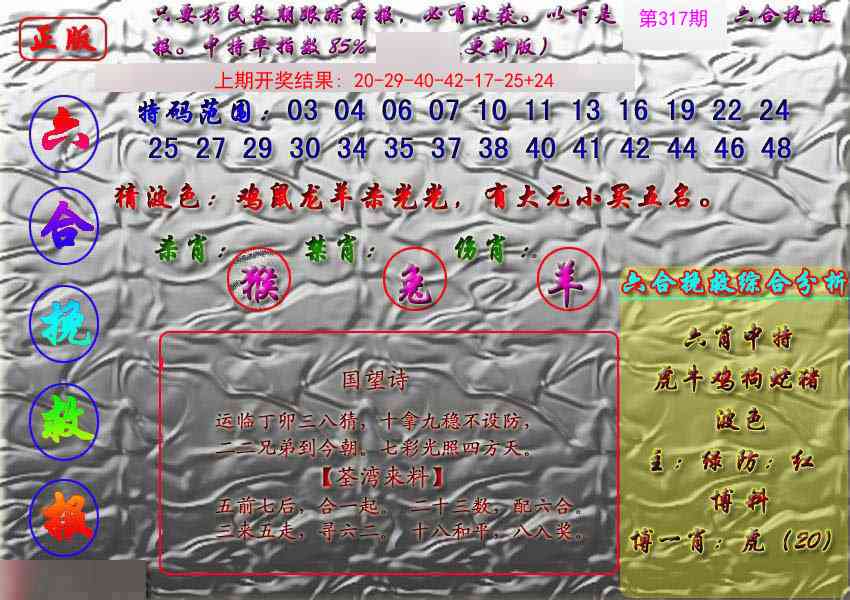 正版
只要彩民长期跟踪本报，必有收获。以下是 第317期 六合挽救
报。中特率指数85% 更新版）
上期开奖结果：20-29-40-42-17-25+24
特码范围：03 04 06 07 10 11 13 16 19 22 24
25 27 29 30 34 35 37 38 40 41 42 44 46 48
猜波色：鸡鼠龙羊杀光光，有大无小买五名。
杀肖：猴 禁肖：兔 伤肖：羊
六
合
挽
救
报
国望诗
运临丁卯三八猜，十拿九稳不设防，
二二兄弟到今朝。七彩光照四方天。
【荃湾来料】
五前七后，合一起。二十三数，配六合。
三来五走，寻六二。十八和平，八入奖。
六合挽救综合分析
六肖中特
虎牛鸡狗蛇猪
波色
主：绿防：红
博料
博一肖：虎（20）